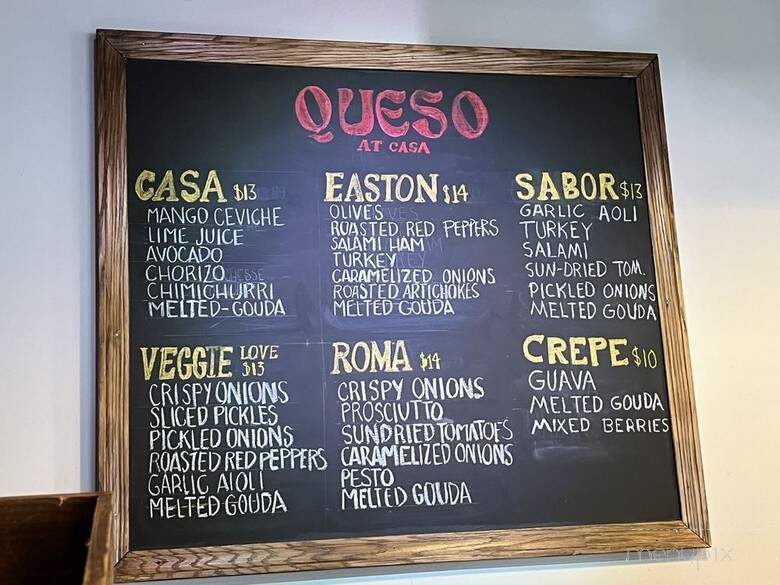 QUESO
AT CASA
CASA $13
MANGO CEVICHE
LIME JUICE
AVOCADO
CHORIZO
CHIMICHURRI
MELTED-GOUDA
EASTON $14
OLIVES
ROASTED RED PEPPERS
SALAMI HAM
TURKEY
CARAMELIZED ONIONS
ROASTED ARTICHOKES
MELTED GOUDA
SABOR $13
GARLIC AOLI
TURKEY
SALAMI
SUN-DRIED TOM.
PICKLED ONIONS
MELTED GOUDA
VEGGIE LOVE $13
CRISPY ONIONS
SLICED PICKLES
PICKLED ONIONS
ROASTED RED PEPPERS
GARLIC AIOLI
MELTED GOUDA
ROMA $14
CRISPY ONIONS
PROSCIUTTO
SUNDRIED TOMATOES
CARAMELIZED ONIONS
PESTO
MELTED GOUDA
CREPE $10
GUAVA
MELTED GOUDA
MIXED BERRIES
menupix